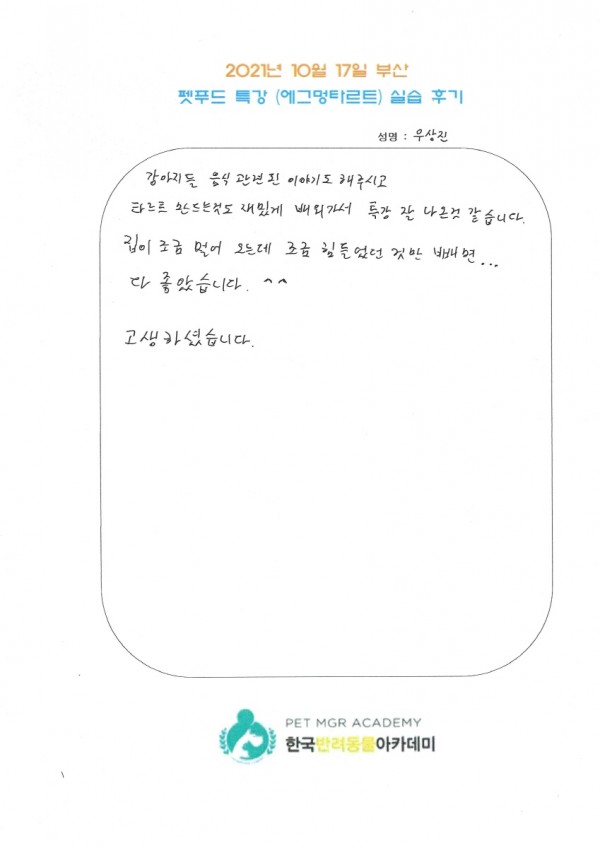 2021년 10월 17일 부산
펫푸드 특강 (에그멍타르트) 실습 후기
성명 : 우상진
강아지들 음식 관련된 이야기도 해주시고
타르트 만드는것도 재밌게 배워가서 특강 잘 나온것 같습니다.
집이 조금 멀어 오는데 조금 힘들었던 것만 빼면...
다 좋았습니다. ^^
고생하셨습니다.
PET MGR ACADEMY
한국반려동물아카데미